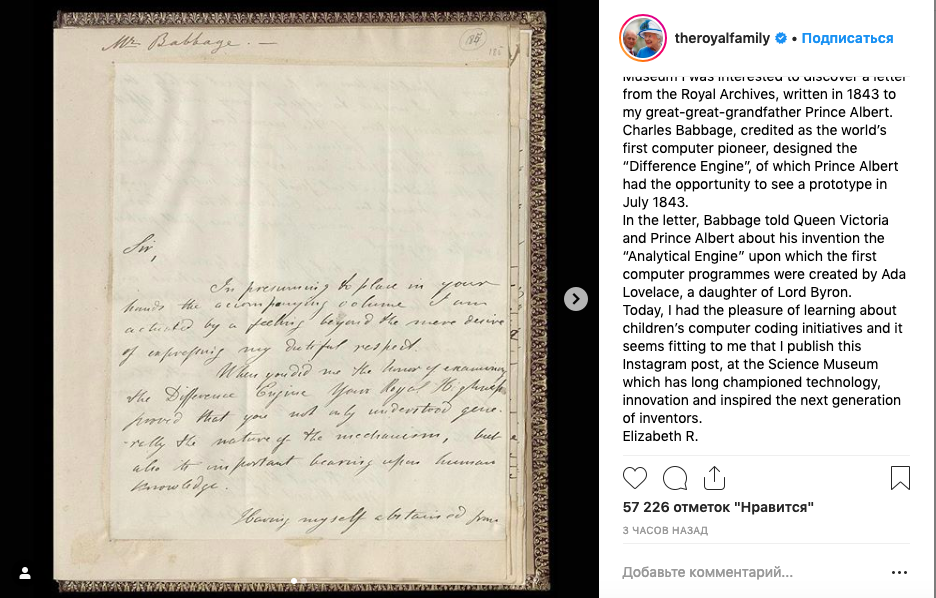 Mr Babbage. —
185
185
Sir,
In presuming to place in your
hands the accompanying volume I am
actuated by a feeling beyond the mere desire
of expressing my dutiful respect.
When you did me the honor of examining
the Difference Engine Your Royal Highness
proved that you not only understood gene-
-rally the nature of the mechanism, but
also its important bearing upon human
knowledge.
Having myself abstained from
theroyalfamily • Подписаться
Museum I was interested to discover a letter
from the Royal Archives, written in 1843 to
my great-great-grandfather Prince Albert.
Charles Babbage, credited as the world’s
first computer pioneer, designed the
“Difference Engine”, of which Prince Albert
had the opportunity to see a prototype in
July 1843.
In the letter, Babbage told Queen Victoria
and Prince Albert about his invention the
“Analytical Engine” upon which the first
computer programmes were created by Ada
Lovelace, a daughter of Lord Byron.
Today, I had the pleasure of learning about
children’s computer coding initiatives and it
seems fitting to me that I publish this
Instagram post, at the Science Museum
which has long championed technology,
innovation and inspired the next generation
of inventors.
Elizabeth R.
57 226 отметок "Нравится"
3 ЧАСОВ НАЗАД
Добавьте комментарий...